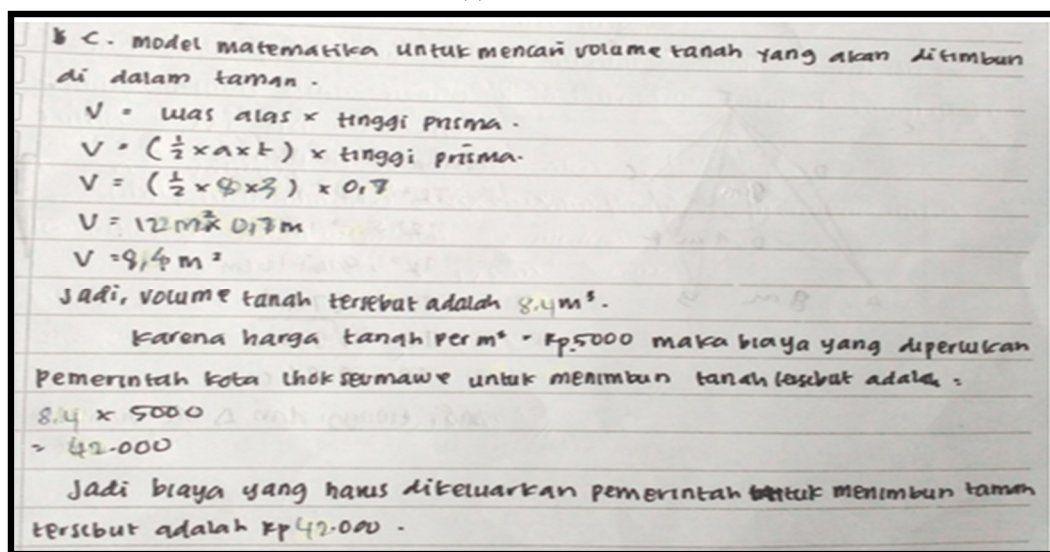 C. model matematika untuk mencari volume tanah yang akan ditimbun
di dalam taman.
V = luas alas x tinggi prisma.
V = (½ x a x t) x tinggi prisma.
V = (½ x 8 x 3) x 0,7
V = 12 m² x 0,7 m
V = 8,4 m³
Jadi, volume tanah tersebut adalah 8.4 m³.
Karena harga tanah per m³ = Rp.5000 maka biaya yang diperlukan
Pemerintah kota lhokseumawe untuk menimbun tanah tersebut adalah =
8.4 x 5000
= 42.000
Jadi biaya yang harus dikeluarkan pemerintah untuk menimbun taman
tersebut adalah Rp 42.000.